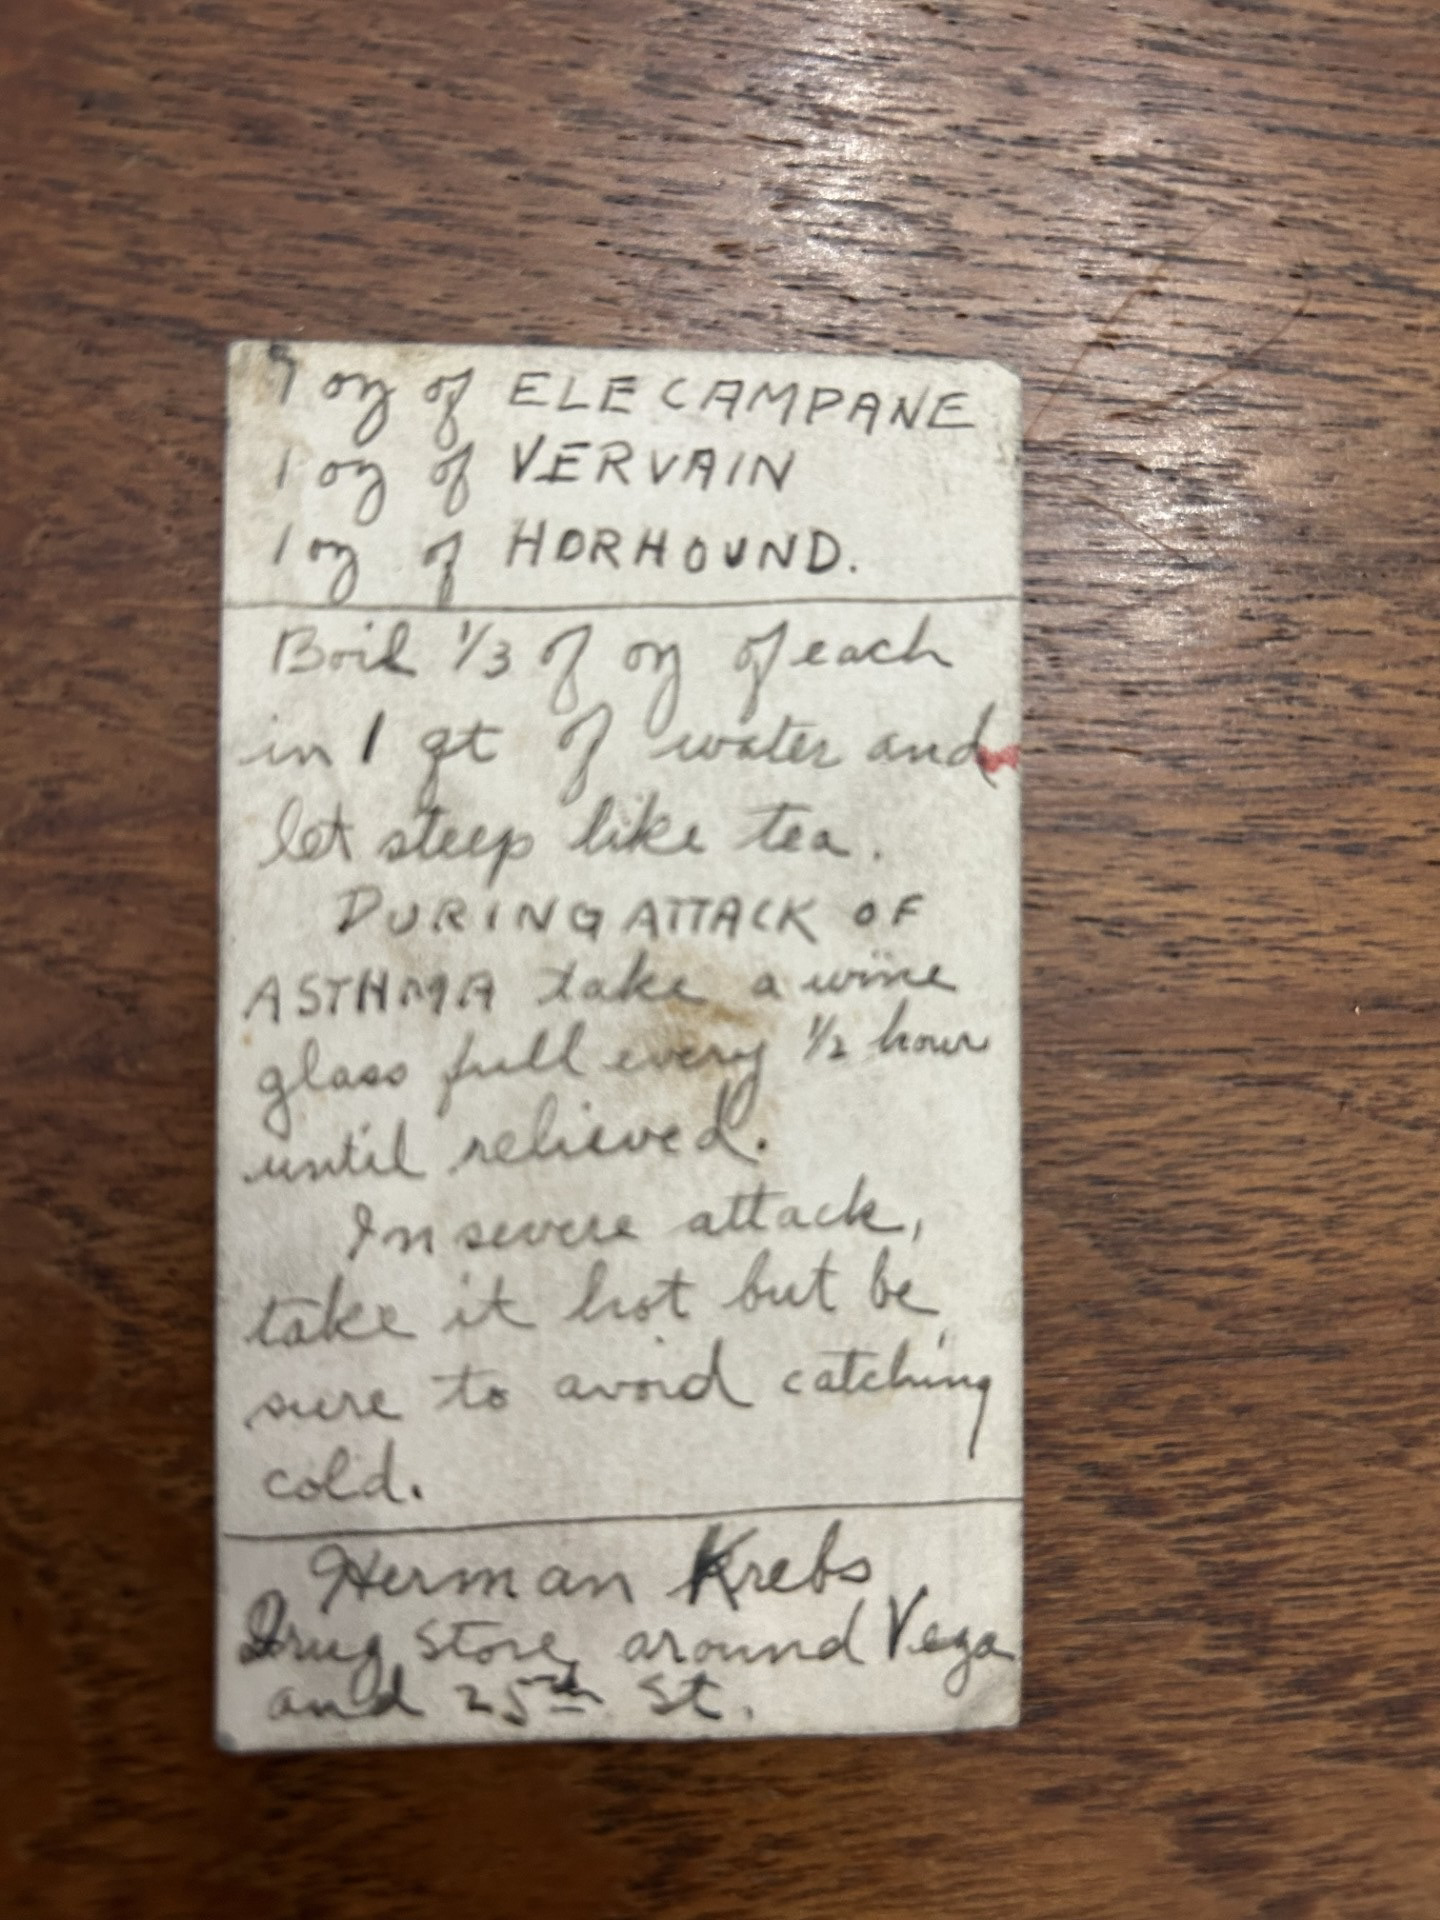 1 oz of ELECAMPANE
1 oz of VERVAIN
1 oz of HORHOUND.
Boil 1/3 of oz of each
in 1 qt of water and
let steep like tea.
DURING ATTACK OF
ASTHMA take a wine
glass full every 1/2 hour
until relieved.
In severe attack,
take it hot but be
sure to avoid catching
cold.
Herman Krebs
Drug Store around Vega
and 25th St.